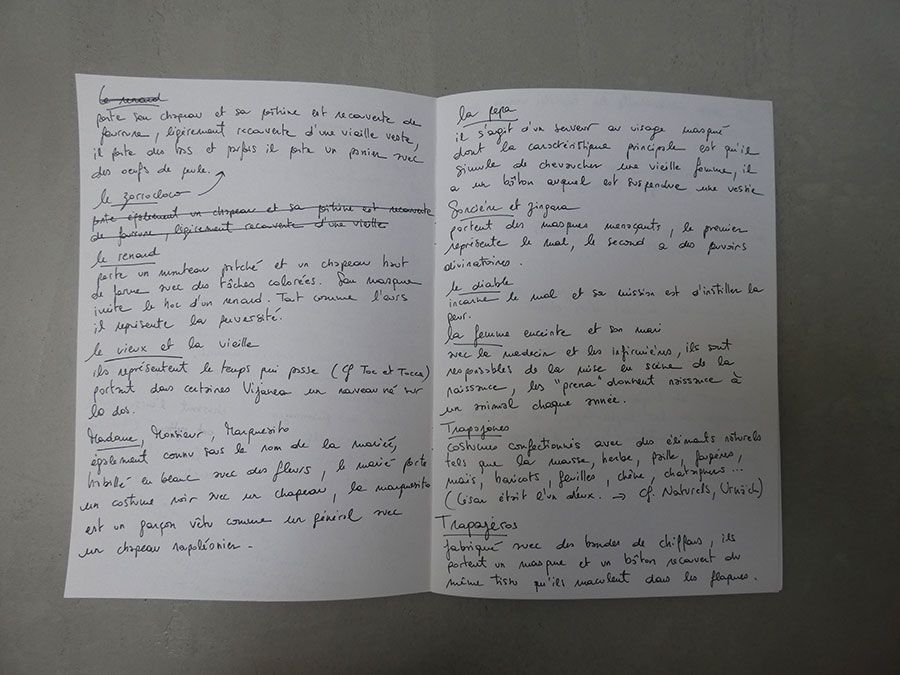 le renard
porte son chapeau et sa poitrine est recouverte de
fourrure, légèrement recouverte d'une vieille veste,
il porte des bas et parfois il porte un panier avec
des oeufs de poule.
le zorrocloco
porte également un chapeau et sa poitrine est recouverte
de fourrure, légèrement recouverte d'une vieille
le renard
porte un manteau et un chapeau haut
de forme avec des tâches colorées. Son masque
imite le d'un renard. Tout comme l'ours
il représente la perversité.
le vieux et la vieille
ils représentent le temps qui passe (cf
portant dans certaines Vijanea un nouveau né sur
le dos.
Madame, Monsieur, Marquesito
également connu sous le nom de la mariée,
habillé en blanc avec des fleurs, le marié porte
un costume noir avec un chapeau, la marquesito
est un garçon vêtu comme un général avec
un chapeau napoléonien.
la pepa
il s'agit d'un serveur au visage masqué
dont la caractéristique principale est qu'il
simule de chevaucher une vieille femme, il
a un bâton auquel est suspendue une vessie
Sorcière et Zingara
portent des masques menaçants, le premier
représente le mal, le second a des pouvoirs
divinatoires.
le diable
incarne le mal et sa mission est d'instiller la
peur.
la femme enceinte et son mari
avec le medecin et les infirmières, ils sont
responsables de la mise en scène de la
naissance, les "prena" donnent naissance à
un animal chaque année.
Trapajones
costumes confectionnés avec des éléments naturels
tels que la mousse, herbe, paille, fougères,
maïs, haricots, feuilles, chêne, chataigners...
(César était l'un deux. → Cf. Naturels, Urnäsch)
Trapajeros
fabriqué avec des bandes de chiffons, ils
portent un masque et un bâton recouvert du
même tissu qu'ils maculent dans les flaques.